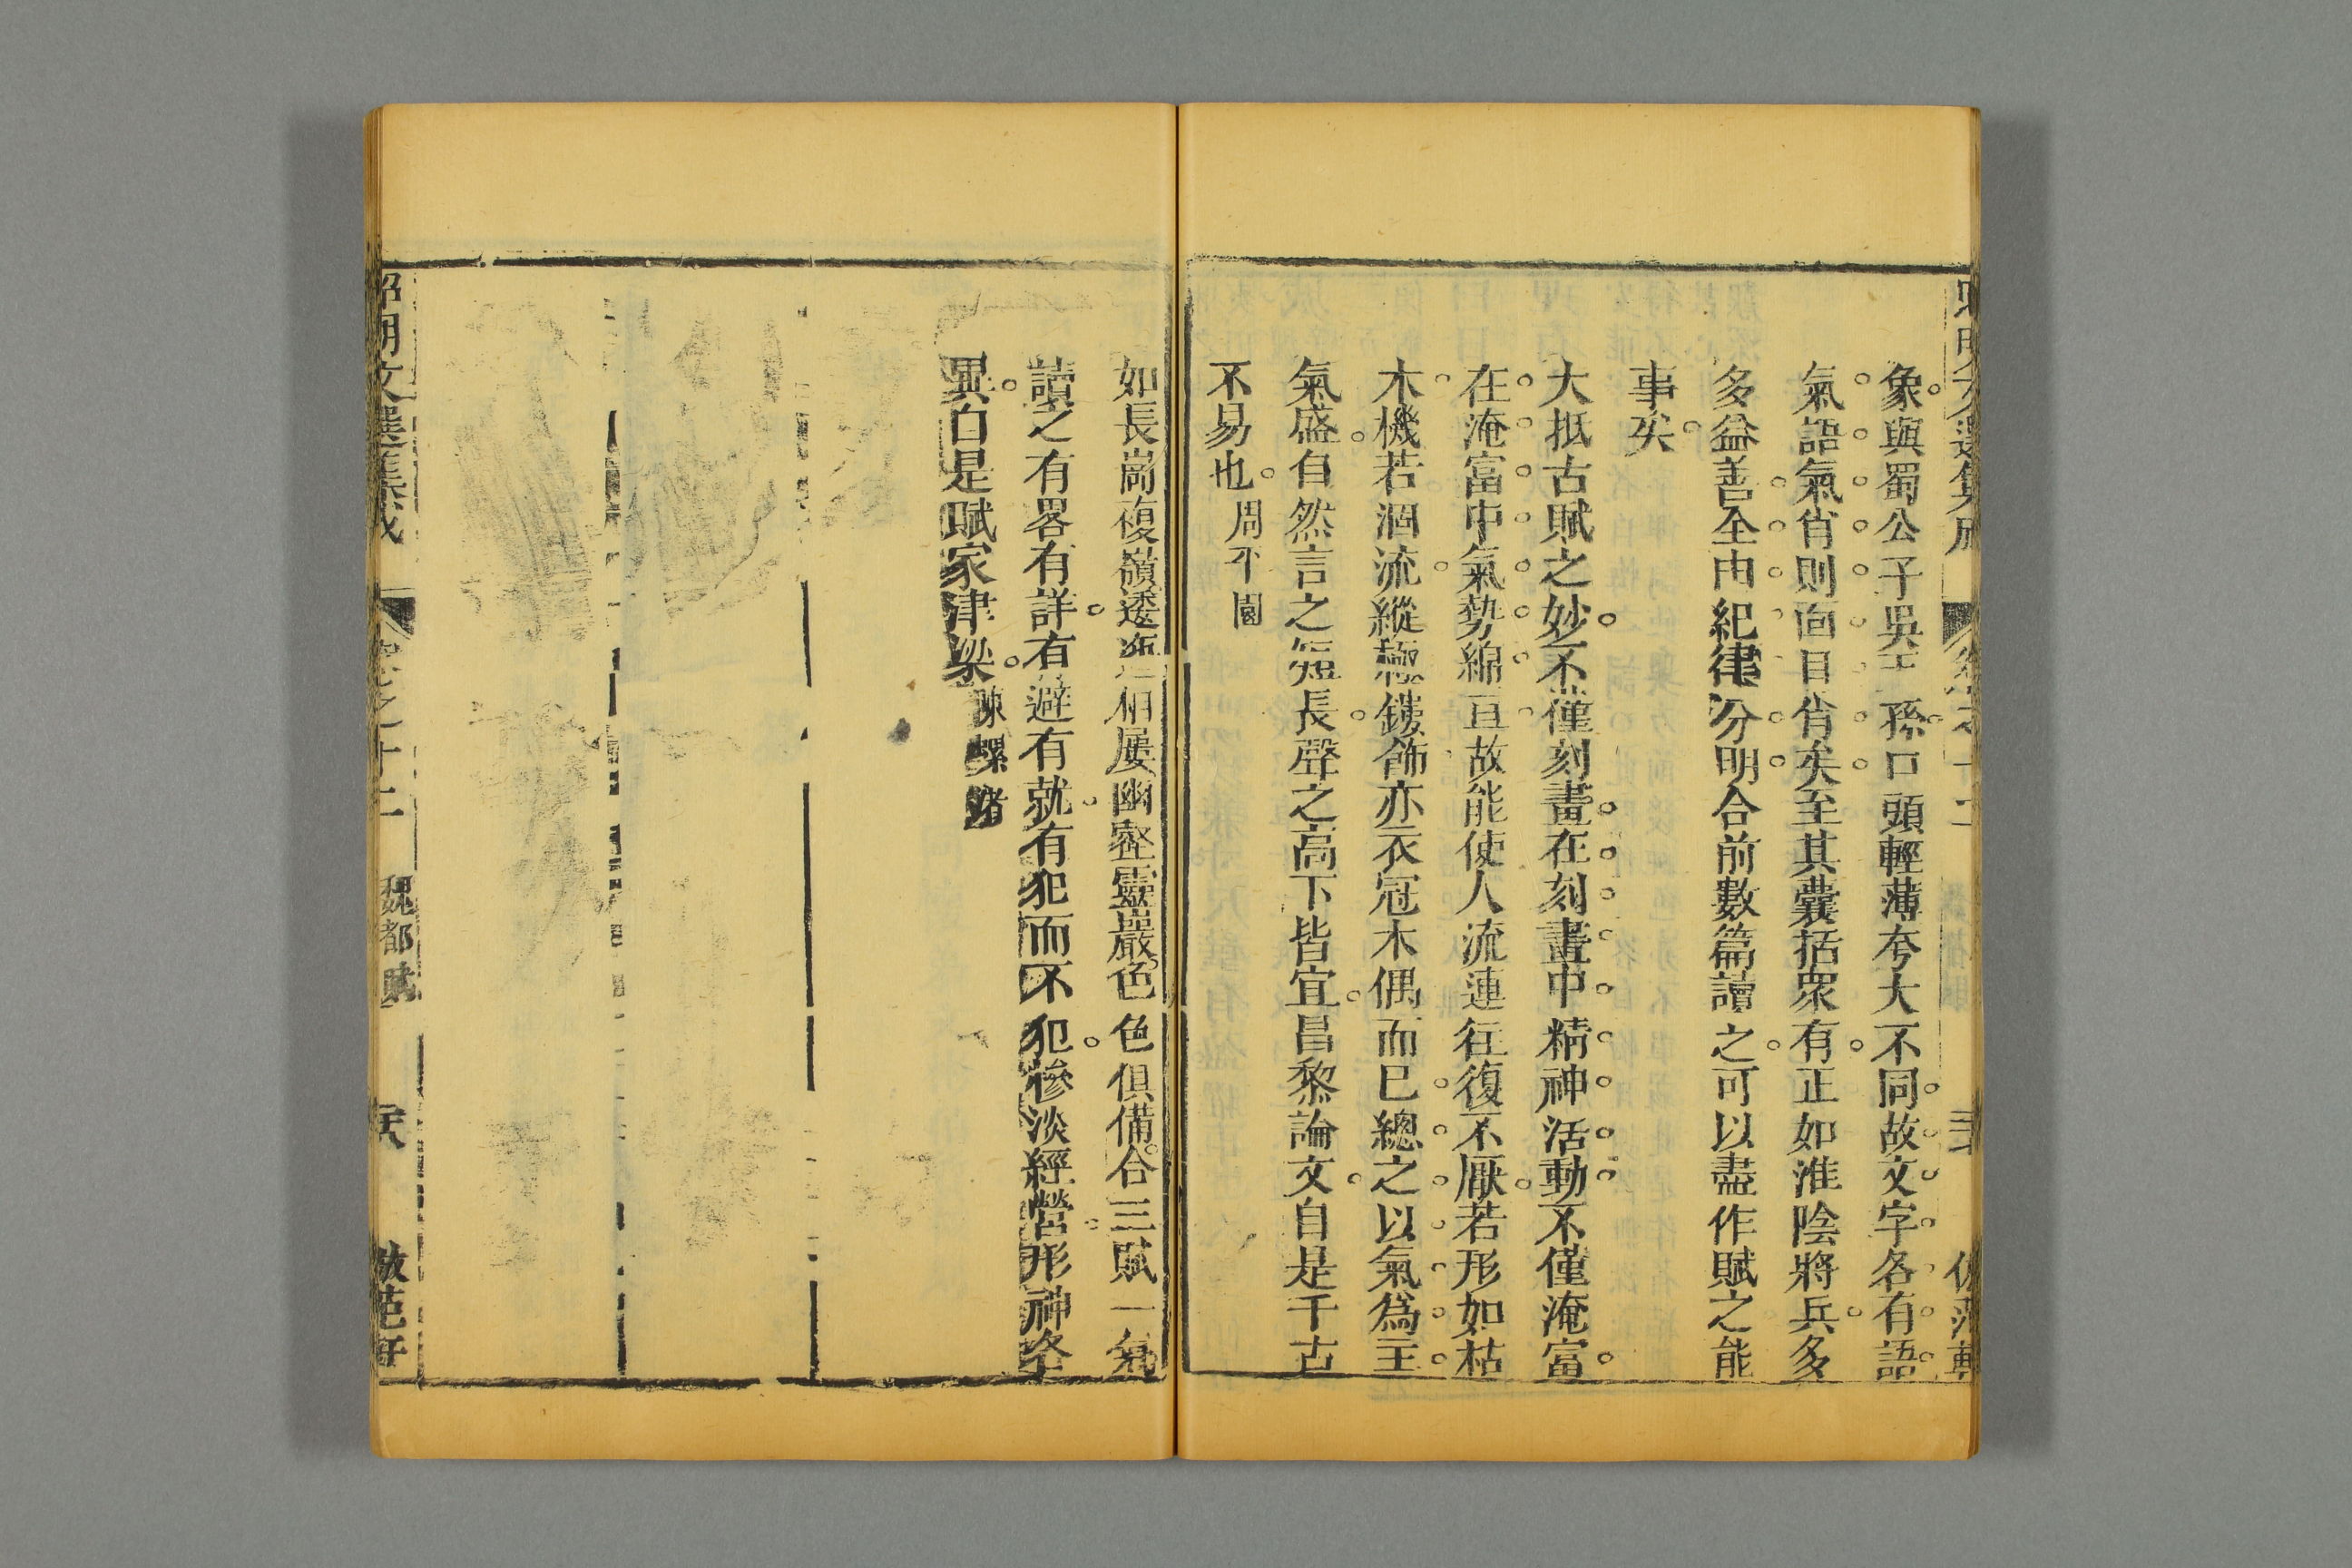 象與蜀公子吳王孫口頭輕薄夸大不同故文字各有語
氣語氣肖則面目肖矣至其囊括衆有正如淮陰將兵多
多益善全由紀律分明合前數篇讀之可以盡作賦之能
事矣
大抵古賦之妙不僅刻畫在刻畫中精神活動不僅淹富
在淹富中氣勢綿亘故能使人流連往復不厭若形如枯
木機若涸流縱極鏤飾亦衣冠木偶而已總之以氣爲主
氣盛自然言之短長聲之高下皆宜昌黎論文自是千古
不易也周平園
如長崗複嶺逶迤相屬幽壑靈巖色色俱備合三賦一氣
讀之有畧有詳有避有就有犯而不犯慘淡經營形神各
異自是賦家津梁陳螺渚
昭明文選集成 卷之十二 魏都賦 倣范軒